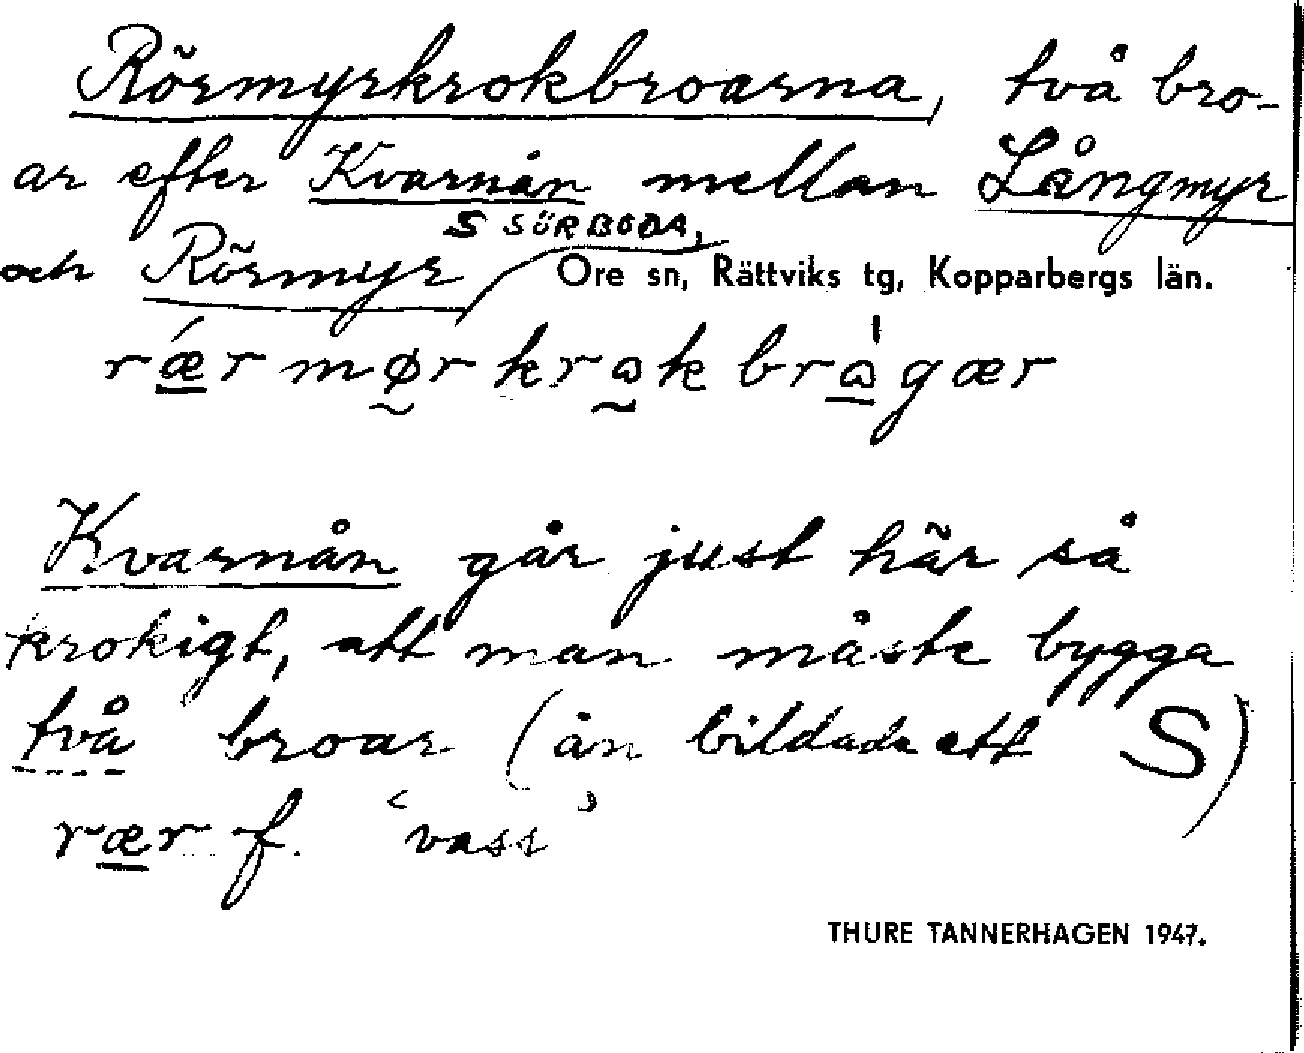 Rörmyrkrokbroarna, två bro-
ar efter Kvarnån mellan Långmyr
S SÖRBODA,
och Rörmyr Ore sn, Rättviks tg, Kopparbergs län.
rǽr mør krɷk brɷ̀gær
Kvarnån går just här så
krokigt, att man måste bygga
två broar (ån bildade ett S)
rær f. ‘vass’
THURE TANNERHAGEN 1947.